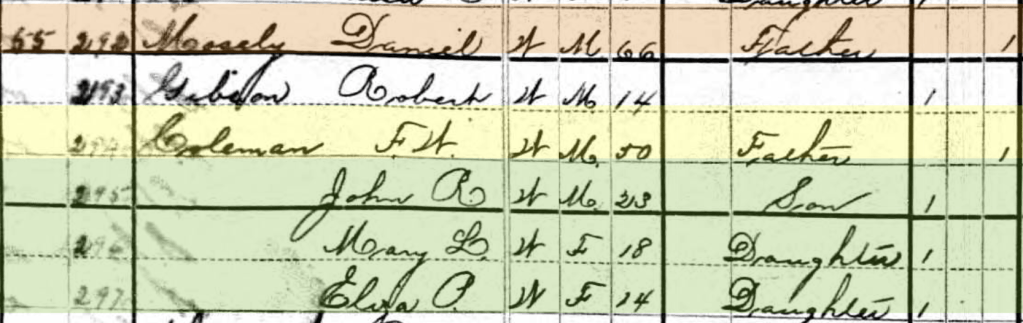 Daughter 1
55 292 Mosely Daniel W M 66 Father 1
293 Gibson Robert W M 14 1
294 Coleman F. W. W M. 50 Father 1
295 John R W M. 23 Son 1
296 Mary L. W F 18 Daughter 1
297 Eliza P. W F 14 Daughter 1